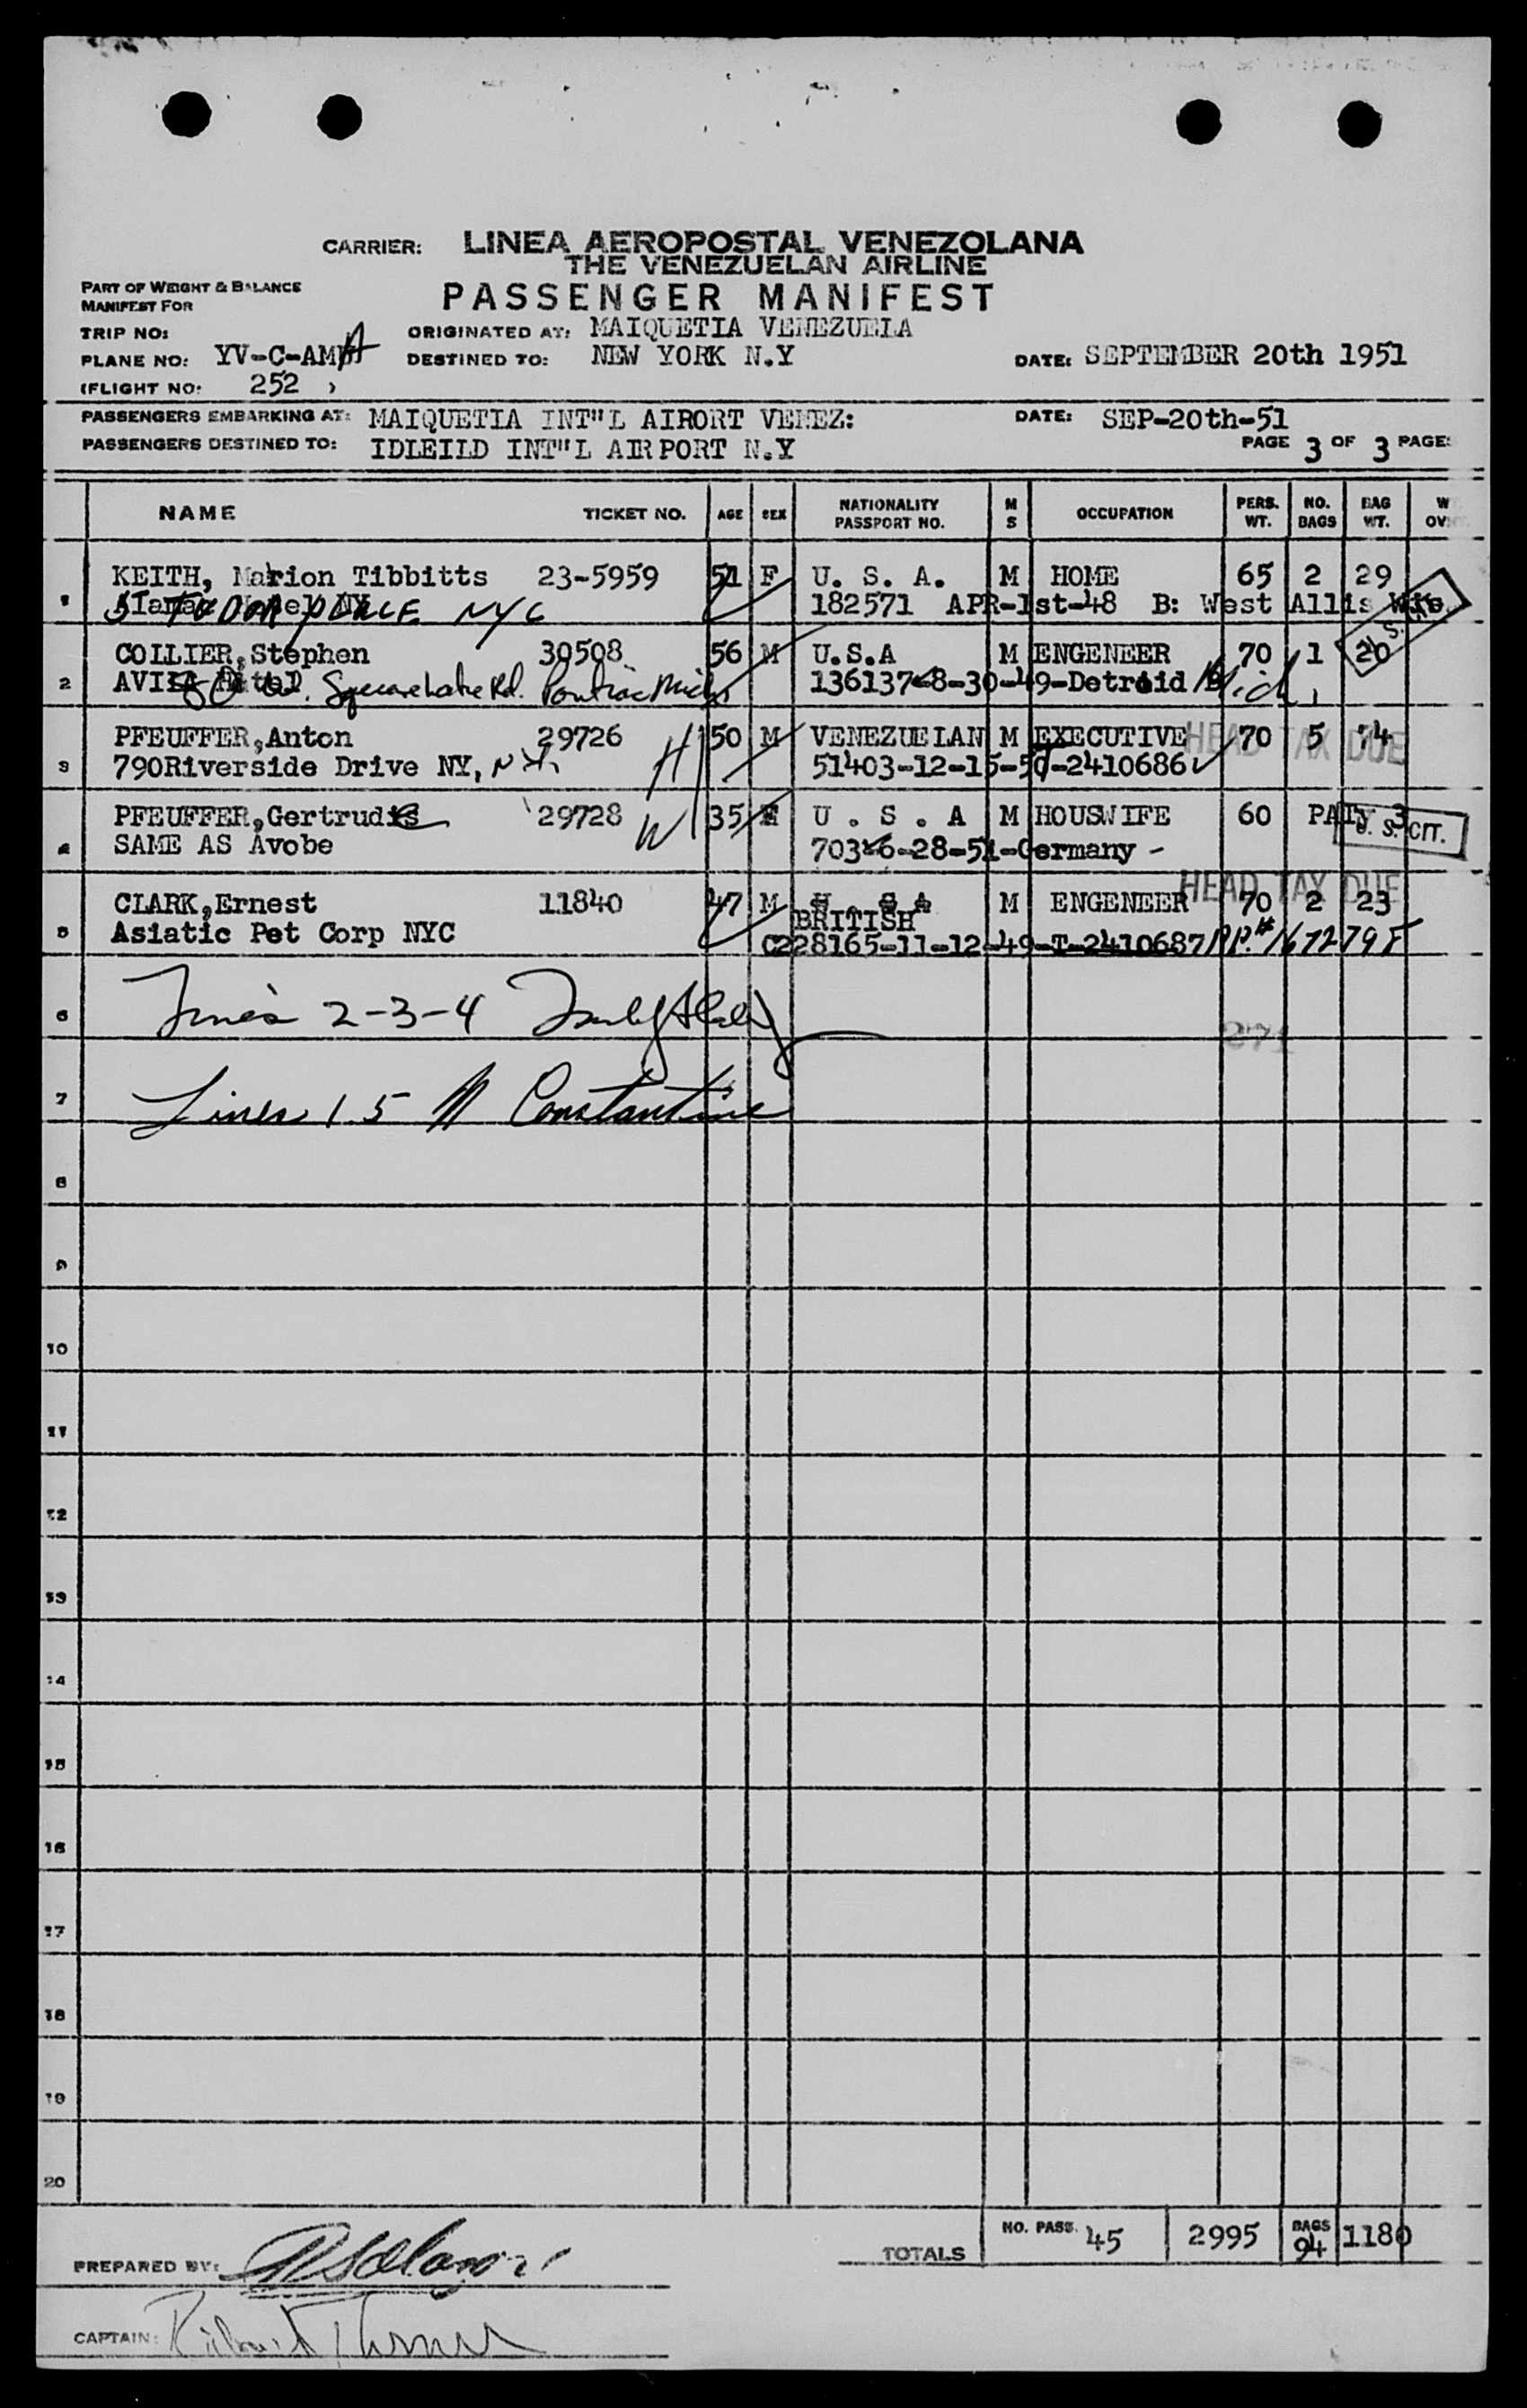 CARRIER: LINEA AEROPOSTAL VENEZOLANA
THE VENEZUELAN AIRLINE
PART OF WEIGHT & BALANCE
MANIFEST FOR
PASSENGER MANIFEST
TRIP NO: ORIGINATED AT: MAIQUETIA VENEZUELA
PLANE NO: YV-C-AMA DESTINED TO: NEW YORK N.Y DATE: SEPTEMBER 20th 1951
(FLIGHT NO: 252 )
PASSENGERS EMBARKING AT: MAIQUETIA INT"L AIRORT VENEZ: DATE: SEP-20th-51
PASSENGERS DESTINED TO: IDLEILD INT"L AIRPORT N.Y PAGE 3 OF 3 PAGES
NAME TICKET NO. AGE SEX NATIONALITY PASSPORT NO. M S OCCUPATION PERS. WT. NO. BAGS BAG WT. W OV
1 KEITH, Marion Tibbitts 23-5959 51 F U. S. A. M HOME 65 2 29
5 TUDOR PLACE NYC 182571 APR-1st-48 B: West Allis Wis.
2 COLLIER, Stephen 30508 56 M U.S.A M ENGENEER 70 1 20
AVILA Hotel Square Lake Rd. Pontiac Mich 136137-8-30-49-Detroid Mich
3 PFEUFFER, Anton 29726 H 50 M VENEZUELAN M EXECUTIVE 70 5 74
HEAD TAX DUE
790Riverside Drive NY, NY 51403-12-15-50-2410686
4 PFEUFFER, Gertrudis 29728 W 35 F U . S . A M HOUSWIFE 60 PATY 3
U. S. CIT.
SAME AS Avobe 703-6-28-51-Germany -
HEAD TAX DUE
5 CLARK, Ernest 11840 47 M U. S A M ENGENEER 70 2 23
BRITISH
Asiatic Pet Corp NYC C228165-11-12-49-T-2410687 PP.# 167279F
6 Lines 2-3-4
271
7 Lines 1.5 Constantine
8
9
10
11
12
13
14
15
16
17
18
19
20
TOTALS NO. PASS. 45 2995 BAGS 94 1180
PREPARED BY:
CAPTAIN: